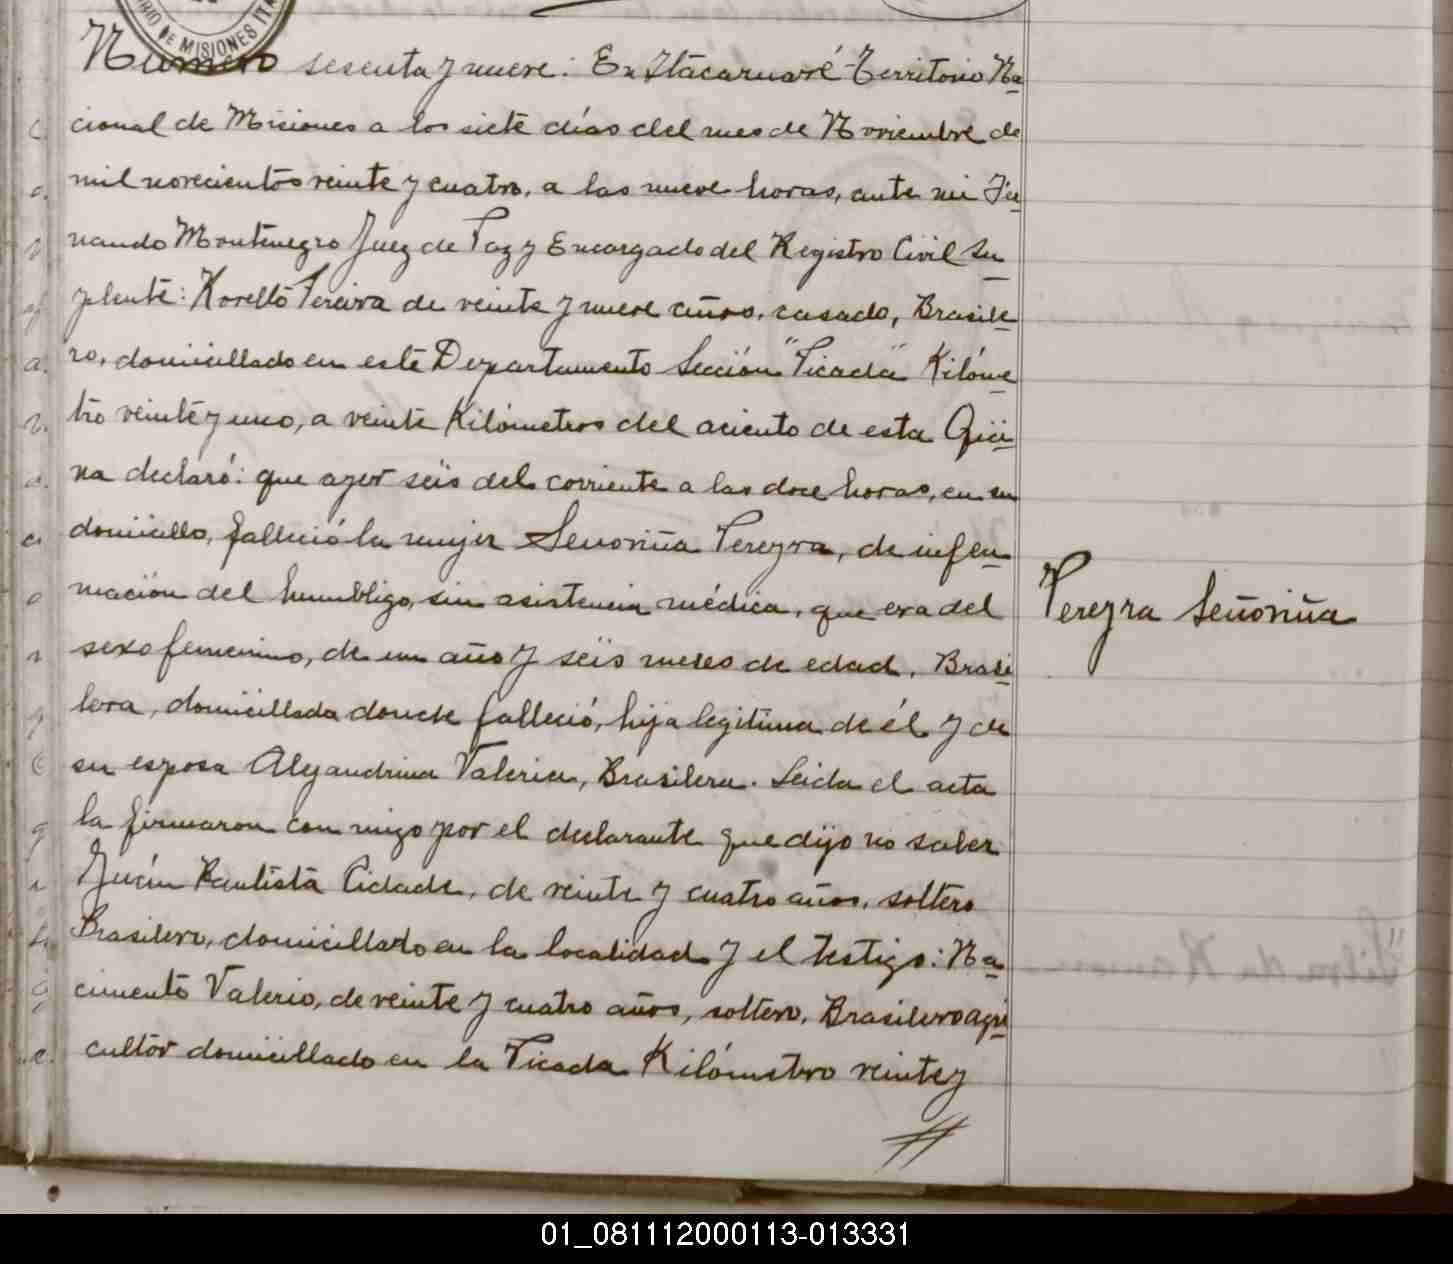 RIO DE MISIONES ITA
Numero sesenta y nueve: En Itacaruaré Territorio Na
cional de Misiones a los siete días del mes de Noviembre de
mil novecientos veinte y cuatro, a las nueve horas, ante mi Fer
nando Montenegro Juez de Paz y Encargado del Registro Civil Su
plente: Pereira de veinte y nueve años, casado, Brasile
ro, domicillado en este Departamento Sección "Picada" Kilóme
tro veinte y uno, a veinte Kilómetros del aciento de esta Ofici
na declaró: que ayer seis del corriente a las doce horas, en su
domicillo, falleció la mujer Senoriña Pereyra, de infla
mación del humbligo, sin asistencia médica, que era del
sexo femenino, de un año y seis meses de edad, Brasi
lera, domicillada donde falleció, hija legitima de él y de
su esposa Alejandrina Valeria, Brasilera. Leida el acta
la firmaron con migo por el declarante que dijo no saber
Juan Bautista Cidade, de veinte y cuatro años, soltero
Brasilero, domicillado en la localidad y el testigo: Na
cimento Valerio, de veinte y cuatro años, soltero, Brasilero agri
cultor domicillado en la Picada Kilómetro veinte y
Pereyra Señoriña
01_081112000113-013331